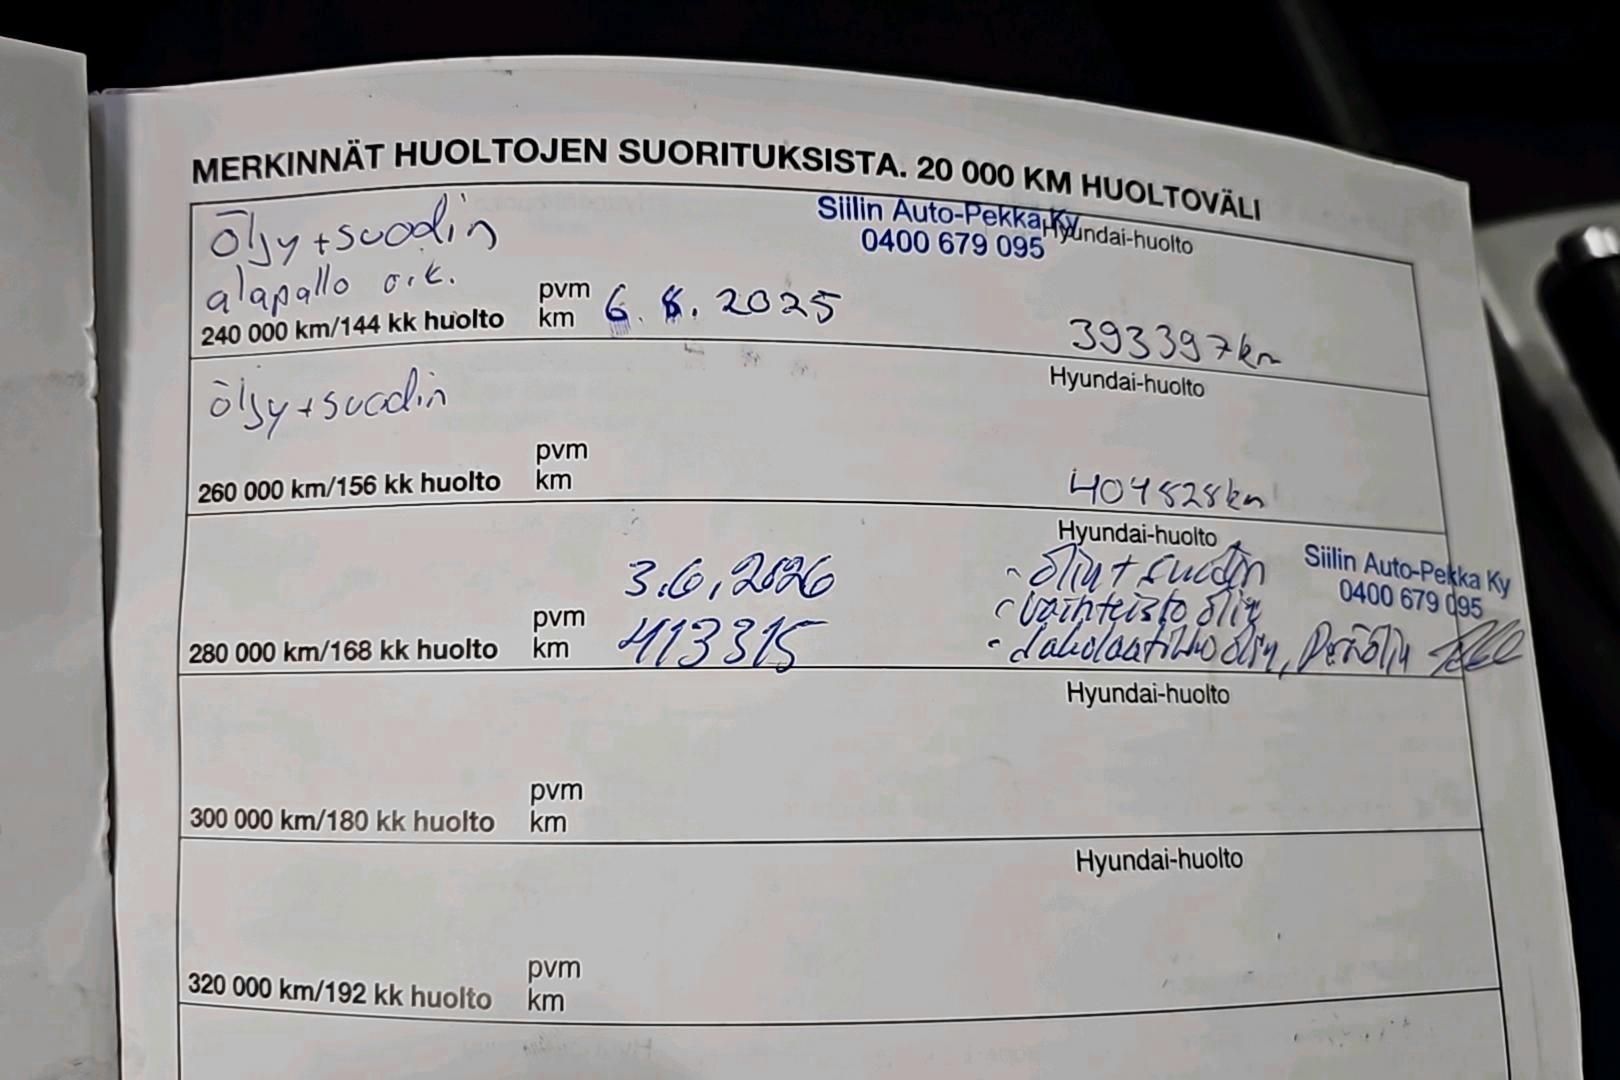 MERKINNÄT HUOLTOJEN SUORITUKSISTA. 20 000 KM HUOLTOVÄLI
Öljy + suodin
alapallo o.k.
240 000 km/144 kk huolto
pvm 6. 8. 2025
km
Siilin Auto-Pekka Ky
0400 679 095
Hyundai-huolto
393397km
öljy + suodin
260 000 km/156 kk huolto
pvm
km
Hyundai-huolto
404828km
280 000 km/168 kk huolto
pvm 3.6.2026
km 413315
Hyundai-huolto
- öljy + suodin
- vaihteisto öljy
- Jakolaatikko öljy, Peräöljy
Siilin Auto-Pekka Ky
0400 679 095
300 000 km/180 kk huolto
pvm
km
Hyundai-huolto
320 000 km/192 kk huolto
pvm
km
Hyundai-huolto